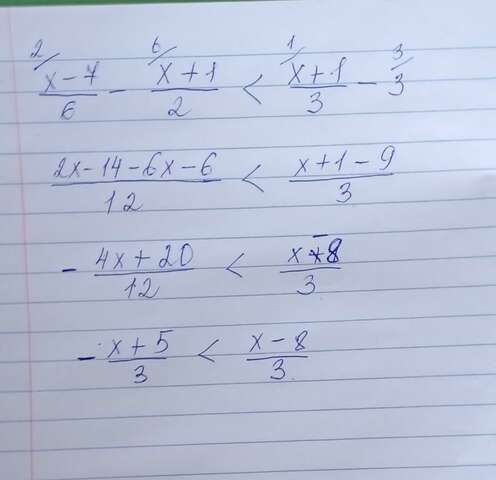 2/ 6/ 1/ 3/
(x-7)/6 - (x+1)/2 < (x+1)/3 - 3
(2x-14-6x-6)/12 < (x+1-9)/3
- (4x+20)/12 < (x-8)/3
- (x+5)/3 < (x-8)/3